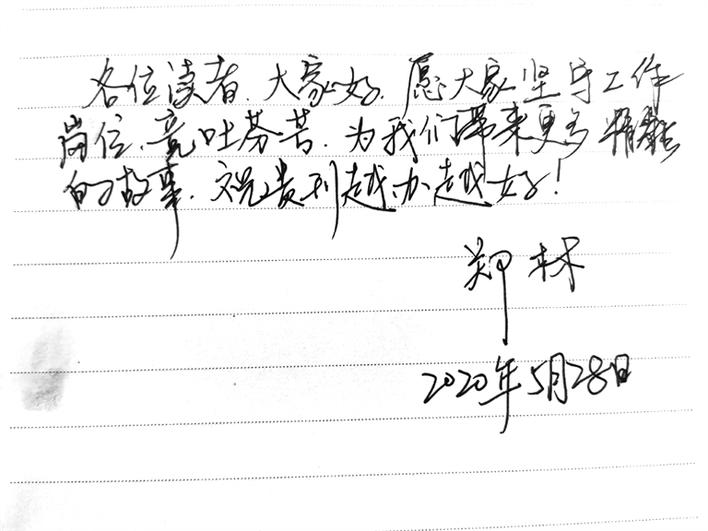 各位读者.大家好.愿大家坚守工作
岗位、竞吐芬芳.为我们带来更多精彩
的故事.祝贵刊越办越好!
郑林
2020年5月28日